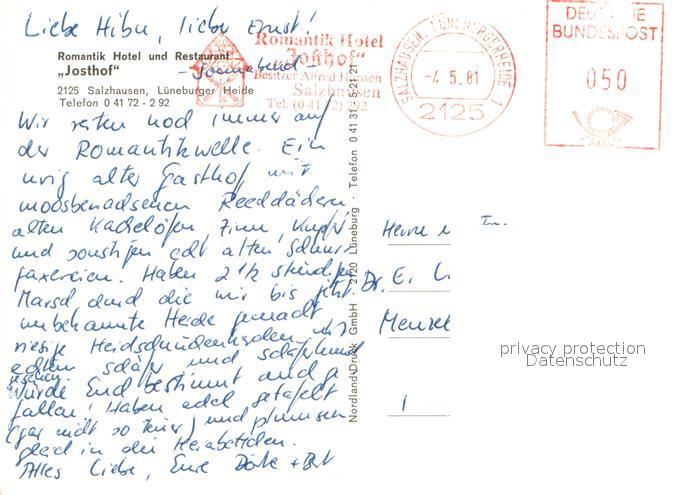 Liebe Hibu, lieber Ernst!
Romantik Hotel und Restaurant
„Josthof“
- Sonnabend -
2125 Salzhausen, Lüneburger Heide
Telefon 0 41 72 - 2 92
Romantik Hotel
„Josthof“
Besitzer Alfred Hansen
Salzhausen
Tel. (0 41 72) 292
SALZHAUSEN, LÜNEBURGERHEIDE 1
-4.5.81
2125
DEUTSCHE
BUNDESPOST
050
Wir reiten noch immer auf
der Romantikwelle. Ein
urig alter Gasthof mit
moosbewachsenen Reeddächern
alten Kachelöfen, Zinn, Kupfer
und sonstigen echt alten
Haben 2 1/2 stündigen
Marsch durch die mir bis jetzt
unbekannte Heide gemacht,
riesige Heidschnuckenherden mit
echtem Schäfer und Schäferhund
gesehen.
Würde Euch bestimmt auch
fallen! Haben edel getafelt
(gar nicht so teuer) und plumpsen
gleich in die
Alles Liebe, Eure Dörte +
Nordland-Druck GmbH · 2120 Lüneburg · Telefon 0 41 31 / 5 21 21
Dr. E.
1
privacy protection
Datenschutz